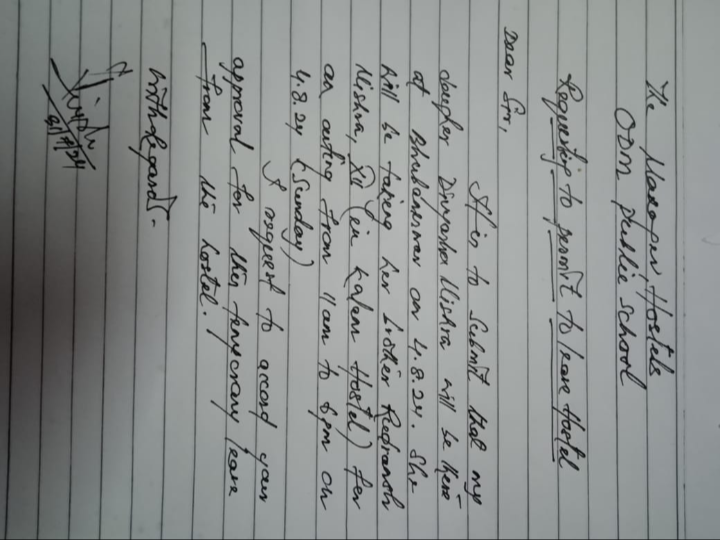 The Manager Hostels
ODM Public School
Requesting to permit to leave Hostel
Dear Sir,
It is to submit that my
daughter Divyasha Mishra will be there
at Bhubaneswar on 4.8.24. She
will be taking her brother Rudransh
Mishra, XII (in Kalam Hostel) for
an outing from 11am to 6pm on
4.8.24 (Sunday)
I request to accord your
approval for this temporary leave
from the hostel.
With Regards-